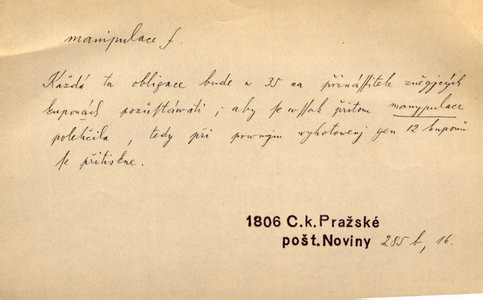 manipulace f.
Každá ta obligace bude w 35 na přinássitele znějících
kuponách pozůstáwati; aby se wssak přitom manypulace
polehčila, tedy při prwným wyhotowenj gen 12 kuponů
se přitiskne.
1806 C.k.Pražské
pošt.Noviny 285 b, 16.